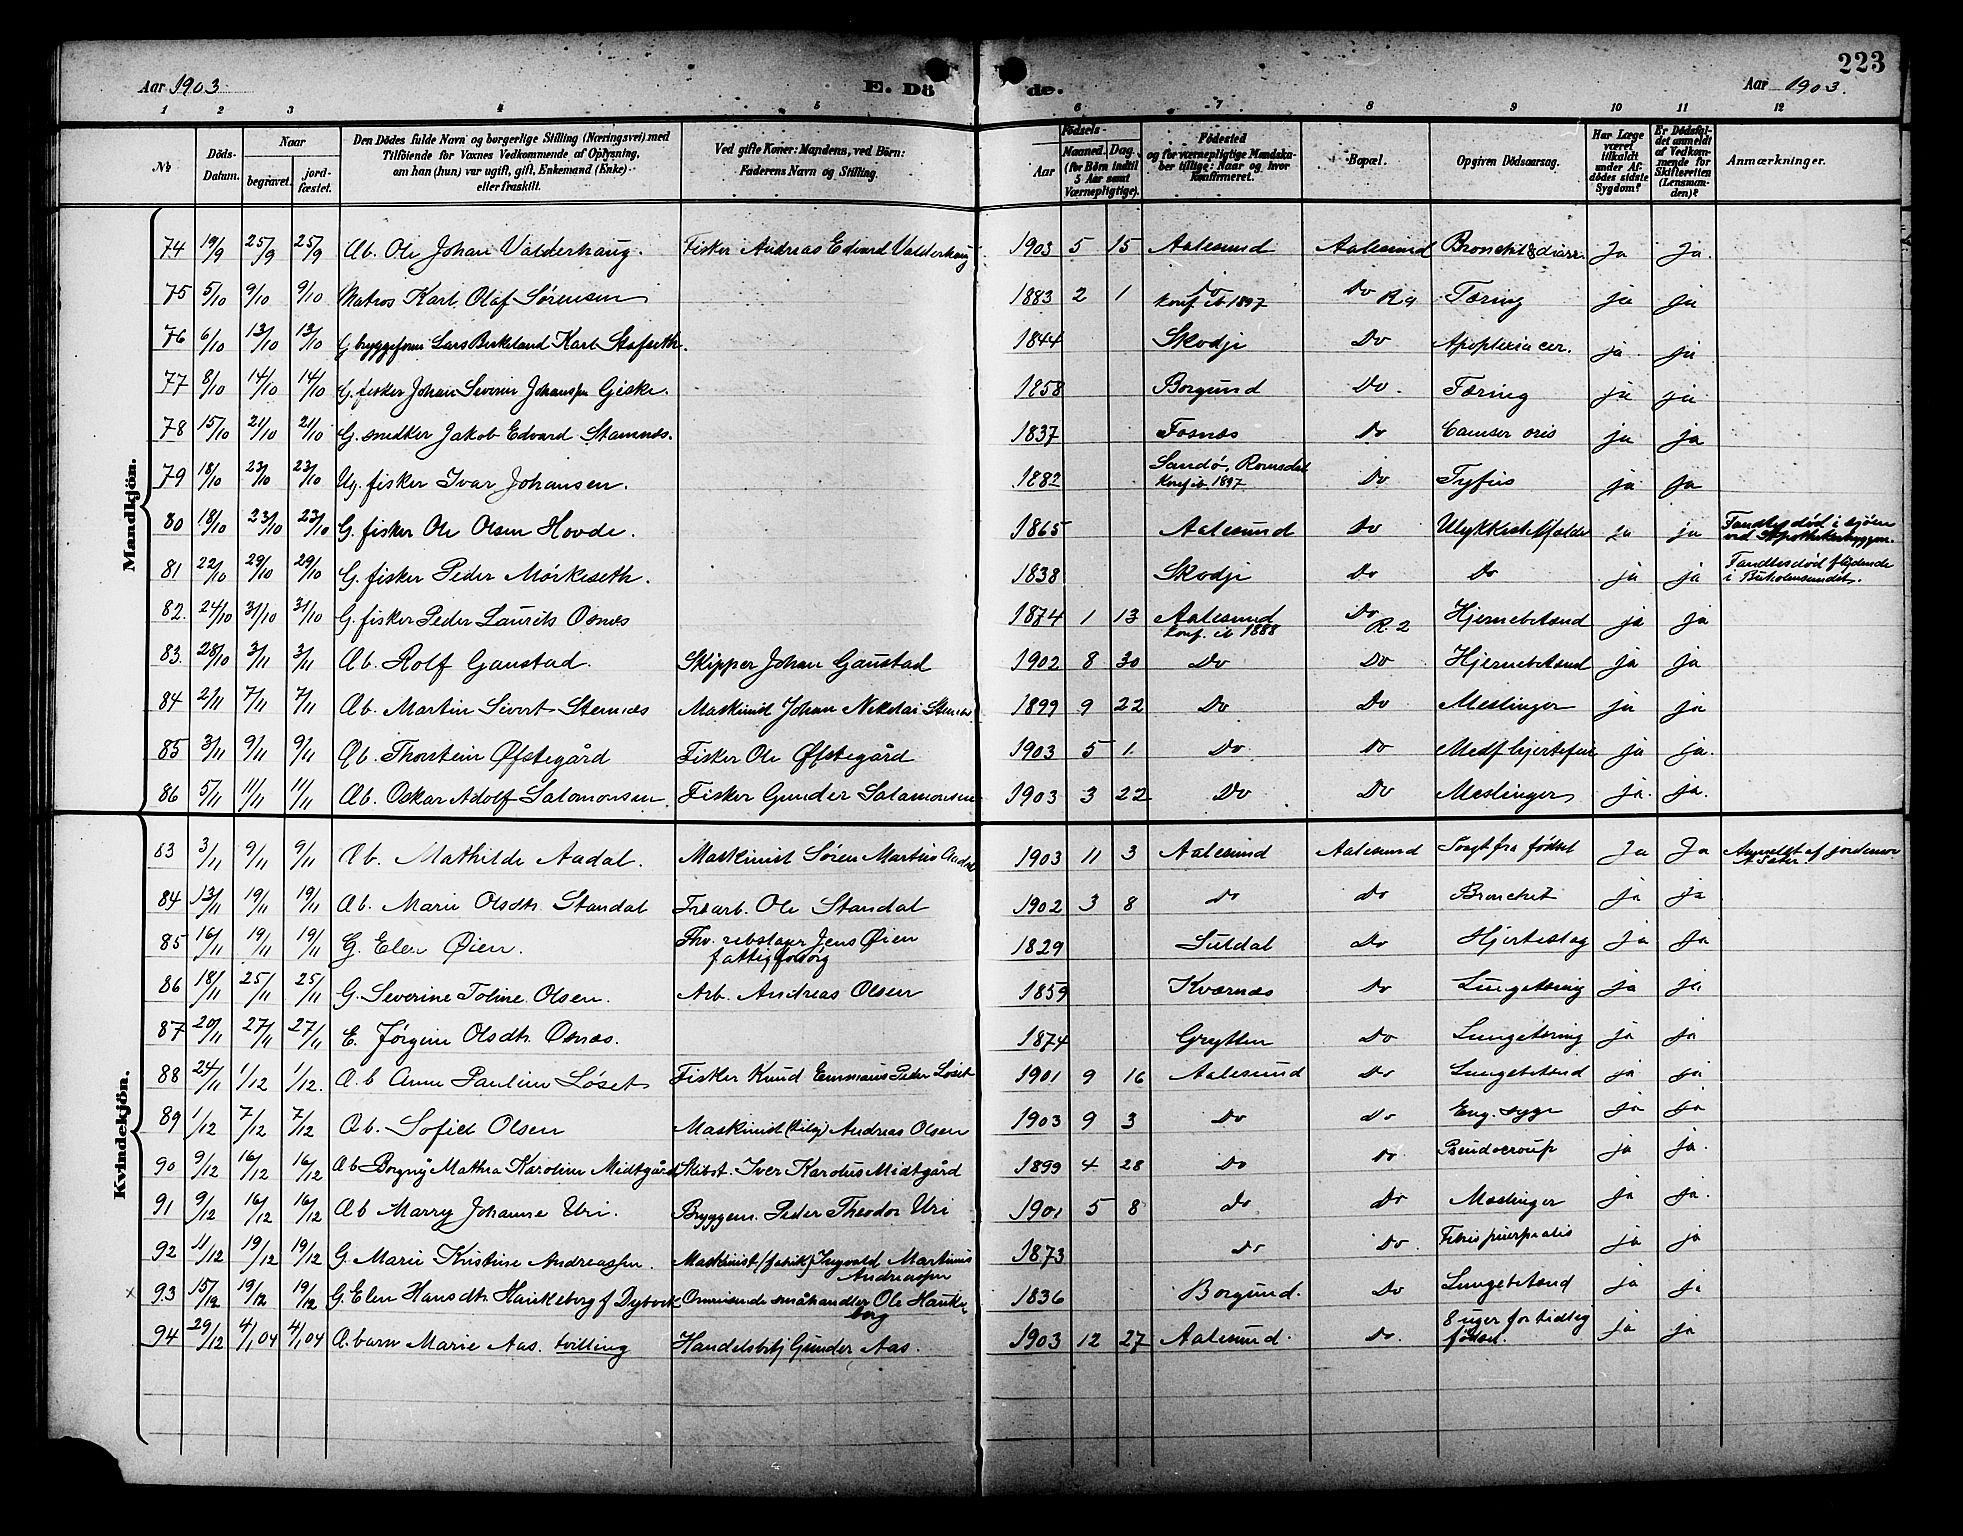 223
Aar 1903. E. Dö de. Aar 1903.
1 2 3 4 5 6 7 8 9 10 11 12
№ Döds-Datum. Naar begravet. jord-fæstet. Den Dödes fulde Navn og borgerlige Stilling (Næringsvei) med Tilföiende for Voxnes Vedkommende af Oplysning, om han (hun) var ugift, gift, Enkemand (Enke) eller fraskilt. Ved gifte Koner: Mandens, ved Börn: Faderens Navn og Stilling. Födsels- Aar Maaned. Dag. (for Börn indtil 5 Aar samt Værnepligtige). Födested og for værnepligtige Mandskaber tillige: Naar og hvor konfirmeret. Bopæl. Opgiven Dödsaarsag. Har Læge været tilkaldt under Afdödes sidste Sygdom? Er Dödsfaldet anmeldt af Vedkommende for Skifteretten (Lensmanden)? Anmærkninger.
Mandkjön.
74 19/9 25/9 25/9 Æb. Ole Johan Valderhaug. Fisker Andreas Edvard Valderhaug 1903 5 15 Aalesund Aalesund Bronchit & diarr. Ja Ja.
75 5/10 9/10 9/10 Matros Karl Olaf Sørensen 1883 2 1 Do konf. ib 1897 Do R 9 Tæring ja ja
76 6/10 13/10 13/10 G. bryggeform. Lars Birkeland Karl Stafseth. 1844 Skodje Do Apoplexia cer. ja ja
77 8/10 14/10 14/10 G. fisker Johan Severin Johanssen Giske. 1858 Borgund Do. Tæring ja ja
78 15/10 21/10 21/10 G. snedker Jakob Edvard Stamnæs. 1837 Fosnæs Do Cancer oris ja ja
79 18/10 23/10 23/10 Ug. fisker Ivar Johansen. 1882 Sandø, Romsdal konf. ib. 1897 Do Tyfus ja ja
80 18/10 23/10 23/10 G. fisker Ole Olsen Hovde. 1865 Aalesund Do Ulykkestilfælde ja ja Fandtes død i sjøen ved Apothekerbryggen.
81 22/10 29/10 29/10 G. fisker Peder Mørkeseth. 1838 Skodje Do Do ja ja Fandtes død flydende i Buholmsundet.
82. 24/10 31/10 31/10 G. fisker Peder Laurits Osnæs 1874 1 13 Aalesund konf. ib 1888 Do R. 2 Hjernebetænd ja ja
83. 28/10 3/11 3/11 Æb. Rolf Gaustad. Skipper Johan Gaustad 1902 8 30 Do Do Hjernebetænd ja ja
84 2/11 7/11 7/11 Æb. Martin Sivert Stennæs Maskinist Johan Nikolai Stennæs 1899 9 22 Do Do Meslinger ja ja
85 3/11 9/11 9/11 Æb. Thorstein Øfstegård Fisker Ole Øfstegård 1903 5 1. Do Do Medf hjertefeil ja ja.
86 5/11 11/11 11/11 Æb. Oskar Adolf Salomonsen Fisker Gunder Salomonsen 1903 3 22 Do Do Meslinger ja. ja.
Kvindekjön.
83 3/11 9/11 9/11 Æb. Mathilde Aadal. Maskinist Søren Martius Aadal 1903 11 3 Aalesund Aalesund Svagt fra fødsel Ja Ja Anmeldt af jordemor
84 13/11 19/11 19/11 Æb. Marie Olsdtr. Standal Frbarb. Ole Standal 1902 3 8 Do Do Bronchit ja ja
85 16/11 19/11 19/11 G. Elen Øien. Fhv. rebslager Jens Øien fattigforsørg 1829 Suldal Do Hjerteslag ja ja
86 18/11 25/11 25/11 G. Severine Toline Olsen. Arb. Andreas Olsen 1859 Kværnæs Do Lungetæring ja ja
87 20/11 27/11 27/11 E. Jørgine Olsdtr. Osnæs. 1874 Grytten Do Lungetæring ja ja
88 24/11 1/12 1/12. Æ.b Anne Pauline Løset Fisker Knud Emmaus Peder Løset 1901 9 16 Aalesund Do Lungebetænd ja ja
89 1/12 7/12 7/12 Æb. Sofie Olsen Maskinist Andreas Olsen 1903 9 3 Do Do Eng. syge ja ja
90 9/12 16/12 16/12 Æb Borgny Mathea Karoline Midtgård Skibst. Iver Karolus Midtgård 1899 4 28 Do Do Psudocroup ja ja.
91 9/12 16/12 16/12 Æb Marry Johanne Uri. Bryggem. Peder Theodor Uri 1901 5 8 Do Do Meslinger ja ja.
92 11/12 19/12 19/12 G. Marie Kristine Andreassen. Maskinist (fabrik) Ingvald Martinus Andreassen 1873 Do Do. Febris puerperalis ja ja
x 93 15/12 19/12 19/12 G. Elen Hansdtr. Haukeborg f Dybvik Omreisende småhandler Ole Haukeborg 1836 Borgund. Do Lungebetænd ja ja
94 29/12 4/1 04 4/1 04 Æ. barn Marie Aas. tvilling Handelsbetj Gunder Aas. 1903 12 27 Aalesund. Do. 8 uger for tidlig fødsel. ja ja